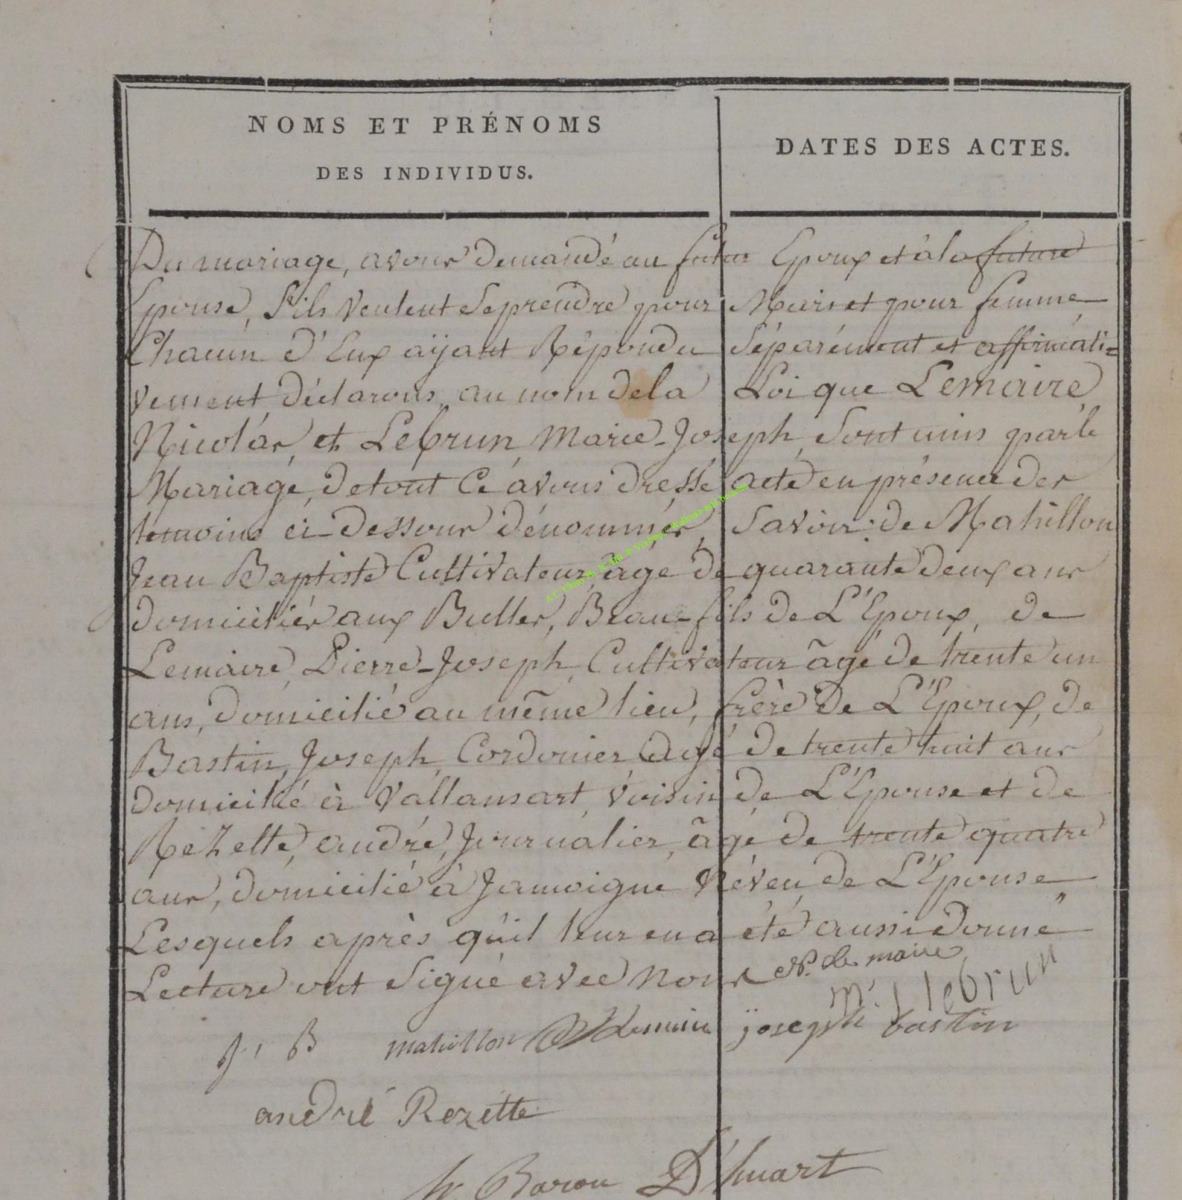 NOMS ET PRÉNOMS
DES INDIVIDUS.
DATES DES ACTES.
Du mariage, avons demandé au futur Epoux et à la future
Epouse, S'ils veulent se prendre pour Mari et pour femme
Chacun d'Eux aÿant Répondu Séparément et affirmati=
vement déclarons, au nom de la Loi que Lemaire
Nicolas, et Lebrun, Marie-Joseph, Sont unis par le
Mariage, de tout Ce avons dressé acte en présence des
temoins ci-dessous dénommés, Savoir: de Mahillon
Jean Baptiste Cultivateur âgé de quarante deux ans
domicilié aux Bulles, Beau-fils de L'Epoux, de
Lemaire, Pierre-Joseph, Cultivateur âgé de trente un
ans, domicilié au même lieu, frère de L'Epoux, de
Bastin, Joseph, Cordonier âgé de trente huit ans
domicilié à Vallansart, Voisin de L'Epouse et de
Rezette, andré, Journalier, âgé de trente quatre
ans, domicilié à Jamoigne Néveu de L'Epouse
Lesquels après qu'il leur en a été aussi donné
Lecture ont Signé avec Nous N. le maire
m. J lebrun
J. B mahillon Lemaire ÿoseph bastin
andré Rezette
Baron D'huart